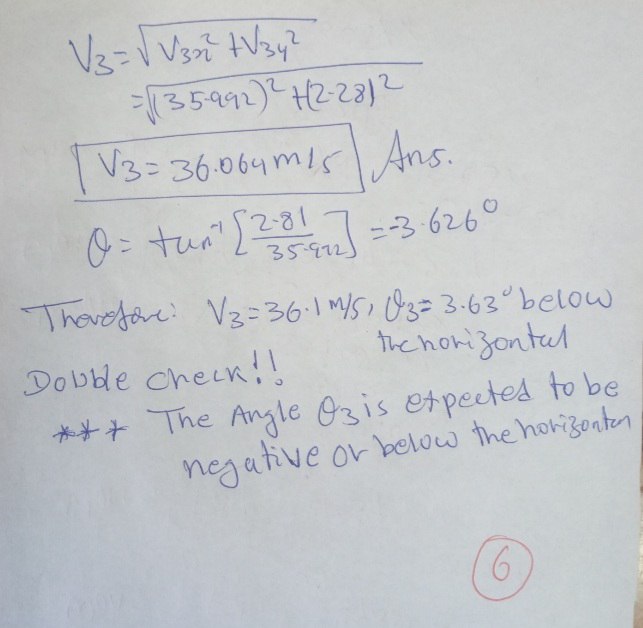 V3 = √V3x² + V3y²
= √(35.992)² + (2.28)²
V3 = 36.064 m/s Ans.
θ = tan⁻¹ [2.81 / 35.992] = -3.626°
Therefore: V3 = 36.1 m/s, θ3 = 3.63° below
the horizontal
Double check!!
*** The Angle θ3 is expected to be
negative or below the horizontal
6